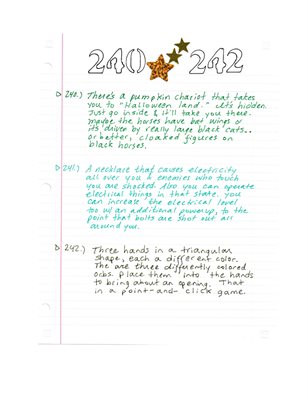 240 242
240.) There's a pumpkin chariot that takes
you to "Halloween land." It's hidden.
Just go inside & it'll take you there.
maybe the horses have bat wings or
its driven by really large black cats..
or better, cloaked figures on
black horses.
241.) A necklace that causes electricity
all over you & enemies who touch
you are shocked. Also you can operate
electrical things in that state. you
can increase the electrical level
too w/ an additional powerup, to the
point that bolts are shot out all
around you.
242.) Three hands in a triangular
shape, each a different color.
The are three differently colored
orbs. place them into the hands
to bring about an opening. That
in a point-and-click game.